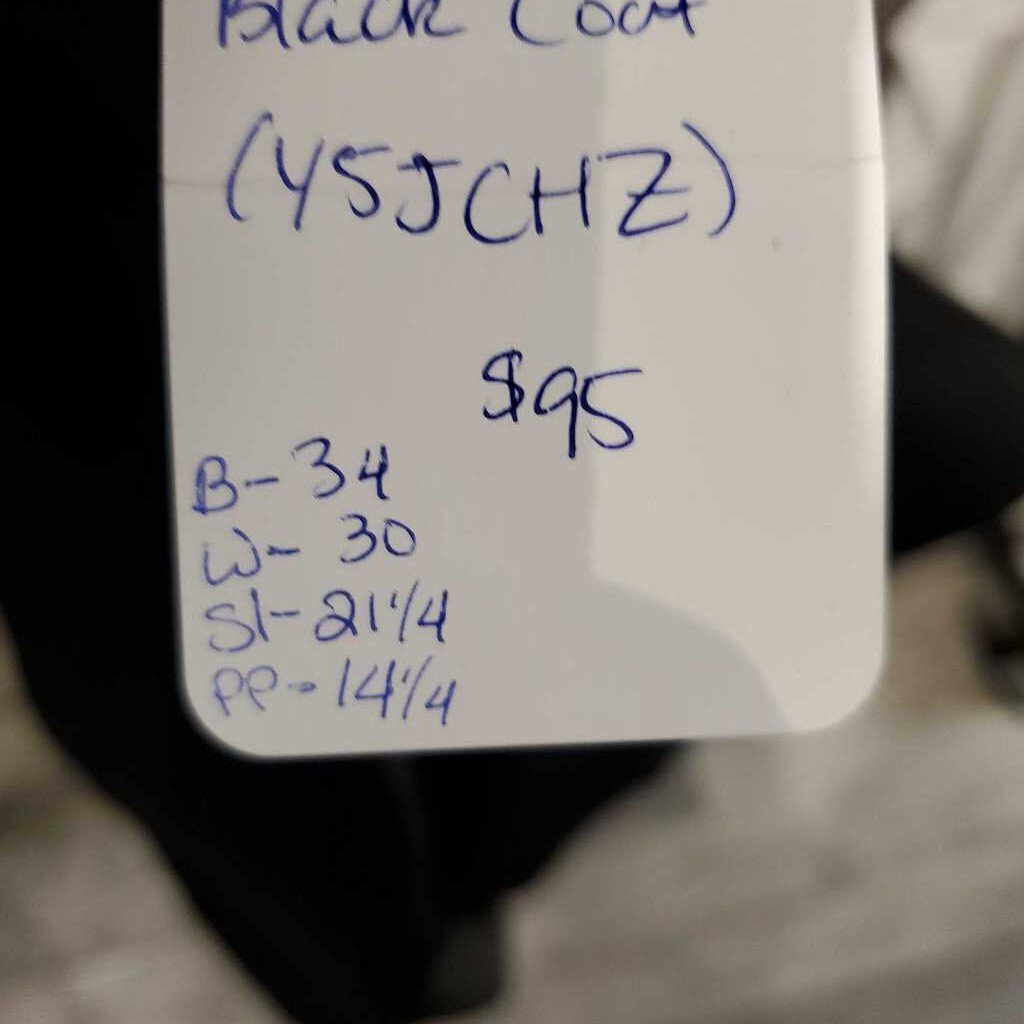 Black Coat
(Y5JCHZ)
$95
B- 34
W- 30
Sl- 21 1/4
PP- 14 1/4